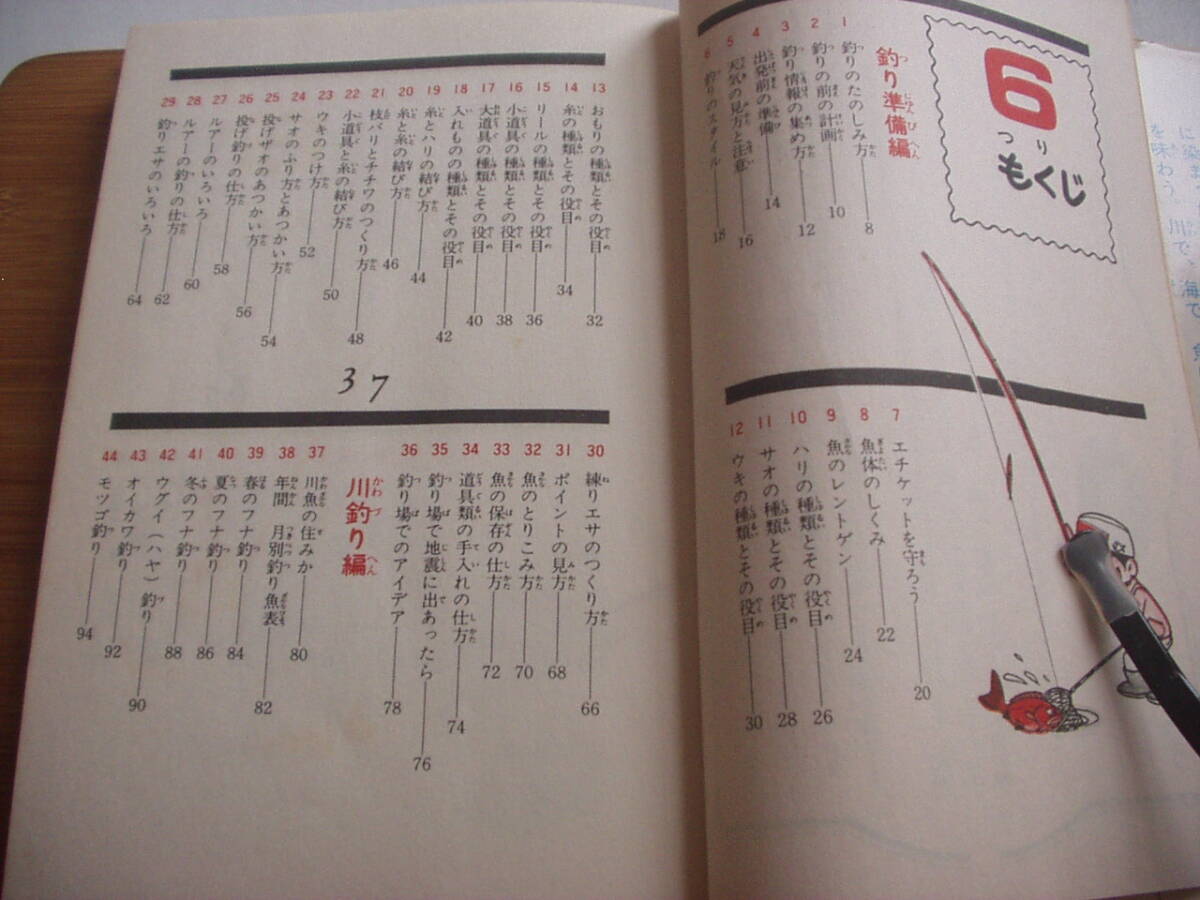 6
つり
もくじ
釣り準備編
1 釣りのたのしみ方 8
2 釣りの前の計画 10
3 釣り情報の集め方 12
4 出発前の準備 14
5 天気の見方と注意 16
6 釣りのスタイル 18
7 エチケットを守ろう 20
8 魚体のしくみ 22
9 魚のレントゲン 24
10 ハリの種類とその役目 26
11 サオの種類とその役目 28
12 ウキの種類とその役目 30
13 おもりの種類とその役目 32
14 糸の種類とその役目 34
15 リールの種類とその役目 36
16 小道具の種類とその役目 38
17 大道具の種類とその役目 40
18 入れものの種類とその役目 42
19 糸とハリの結び方 44
20 糸と糸の結び方 46
21 枝バリとチチワのつくり方 48
22 小道具と糸の結び方 50
23 ウキのつけ方 52
24 サオのふり方とあつかい方 54
25 投げザオのあつかい方 56
26 投げ釣りの仕方 58
27 ルアーのいろいろ 60
28 ルアーの釣りの仕方 62
29 釣りエサのいろいろ 64
37
30 練りエサのつくり方 66
31 ポイントの見方 68
32 魚のとりこみ方 70
33 魚の保存の仕方 72
34 道具類の手入れの仕方 74
35 釣り場で地震に出あったら 76
36 釣り場でのアイデア 78
川釣り編
37 川魚の住みか 80
38 年間 月別釣り魚表 82
39 春のフナ釣り 84
40 夏のフナ釣り 86
41 冬のフナ釣り 88
42 ウグイ(ハヤ)釣り 90
43 オイカワ釣り 92
44 モツゴ釣り 94
に染ま
を味わう
川で、海で